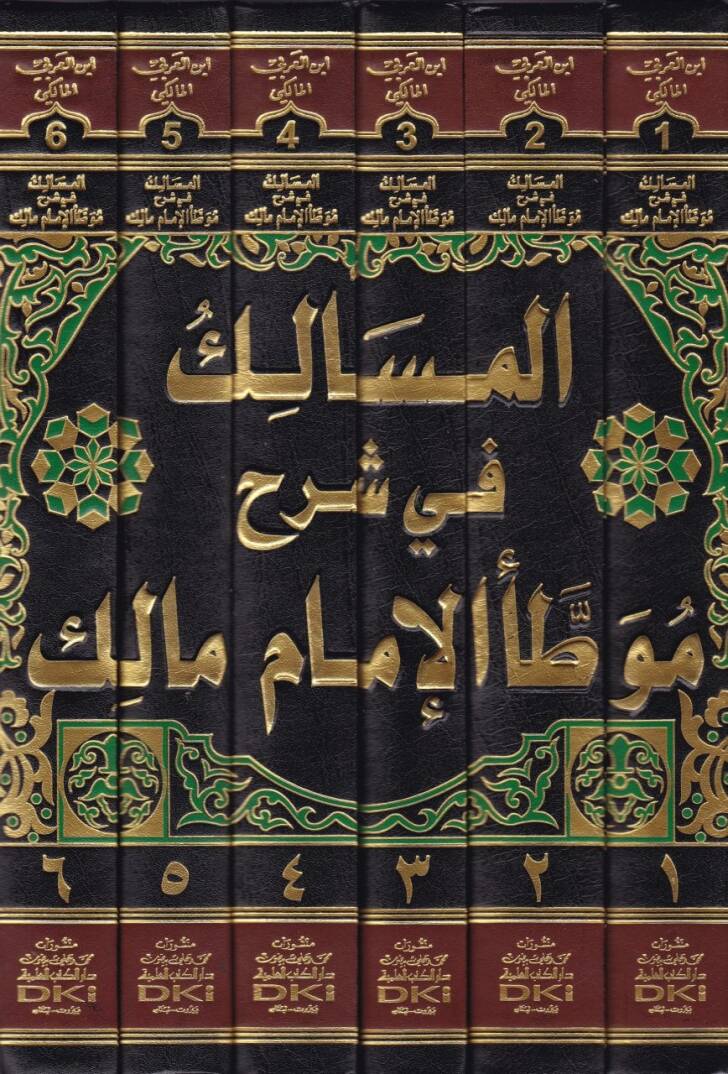 ابن العربي
المالكي
1
المسالك
في شرح
موطأ الإمام مالك
ابن العربي
المالكي
2
المسالك
في شرح
موطأ الإمام مالك
ابن العربي
المالكي
3
المسالك
في شرح
موطأ الإمام مالك
ابن العربي
المالكي
4
المسالك
في شرح
موطأ الإمام مالك
ابن العربي
المالكي
5
المسالك
في شرح
موطأ الإمام مالك
ابن العربي
المالكي
6
المسالك
في شرح
موطأ الإمام مالك
المسَالِكُ
في شرح
مُوَطَّأ الإمام مالِك
١
٢
٣
٤
٥
٦
منشورات
محمد علي بيضون
دار الكتب العلمية
DKi
بيروت - لبنان
منشورات
محمد علي بيضون
دار الكتب العلمية
DKi
بيروت - لبنان
منشورات
محمد علي بيضون
دار الكتب العلمية
DKi
بيروت - لبنان
منشورات
محمد علي بيضون
دار الكتب العلمية
DKi
بيروت - لبنان
منشورات
محمد علي بيضون
دار الكتب العلمية
DKi
بيروت - لبنان
منشورات
محمد علي بيضون
دار الكتب العلمية
DKi
بيروت - لبنان